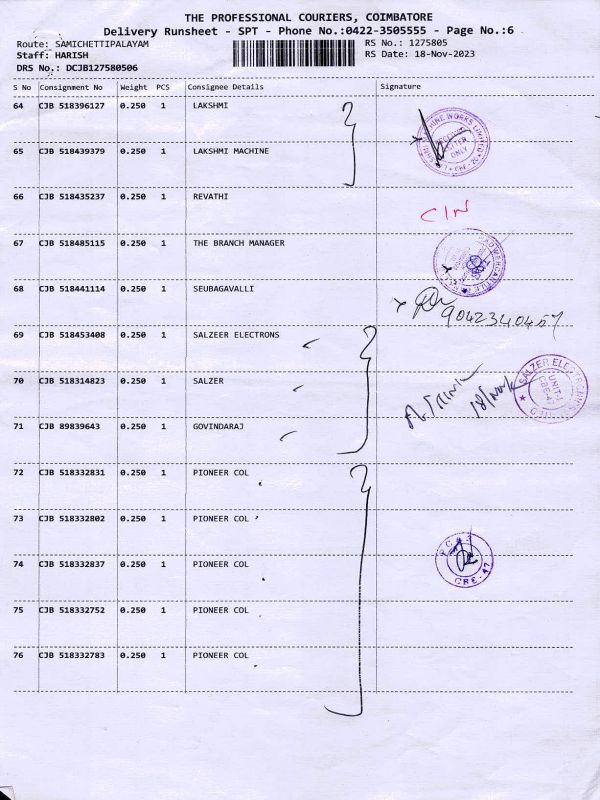 THE PROFESSIONAL COURIERS, COIMBATORE
Delivery Runsheet - SPT - Phone No.:0422-3505555 - Page No.:6
Route: SAMICHETTIPALAYAM RS No.: 1275805
Staff: HARISH RS Date: 18-Nov-2023
DRS No.: DCJB127580506
S No Consignment No Weight PCS Consignee Details Signature
64 CJB 518396127 0.250 1 LAKSHMI
65 CJB 518439379 0.250 1 LAKSHMI MACHINE
66 CJB 518435237 0.250 1 REVATHI
C/N
67 CJB 518485115 0.250 1 THE BRANCH MANAGER
68 CJB 518441114 0.250 1 SEUBAGAVALLI
9042340457
69 CJB 518453408 0.250 1 SALZEER ELECTRONS
70 CJB 518314823 0.250 1 SALZER
SALZER ELECTRONICS
UNIT-1
CBE-47
71 CJB 89839643 0.250 1 GOVINDARAJ
72 CJB 518332831 0.250 1 PIONEER COL
73 CJB 518332802 0.250 1 PIONEER COL
74 CJB 518332837 0.250 1 PIONEER COL
CBE-47
75 CJB 518332752 0.250 1 PIONEER COL
76 CJB 518332783 0.250 1 PIONEER COL